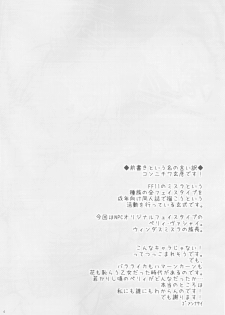 ◆前書きという名の言い訳◆
コンニチワ北原です!
FF11のミスラという
種族の全フェイスタイプを
成年向け同人誌で描こうという
活動を行っている北原です。
今回はNPCオリジナルフェイスタイプの
ペリィ・ヴァシャイ。
ウィンダスミスラの族長。
こんなキャラじゃない!
ってつっこまれそうです。
でも、
パウライカもハマーンカーンも
花も恥らう乙女だった時代があるのです。
若かりし頃のペリィがどうだったか、
本当のところは
私にも誰にもわからんのです!
でも謝ります!